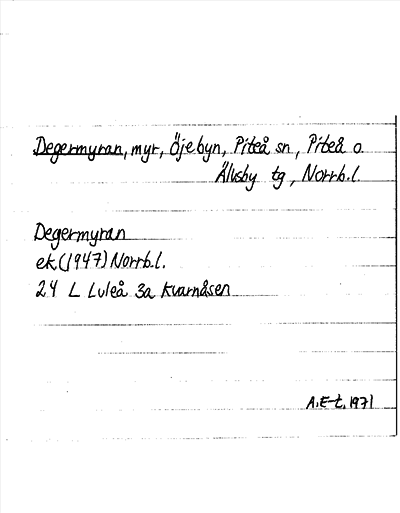 Degermyran, myr, Öjebyn, Piteå sn, Piteå o.
Älvsby tg, Norrb.l.
Degermyran
ek.(1947) Norrb.l.
24 L Luleå 3a Kvarnåsen
A.E-t. 1971